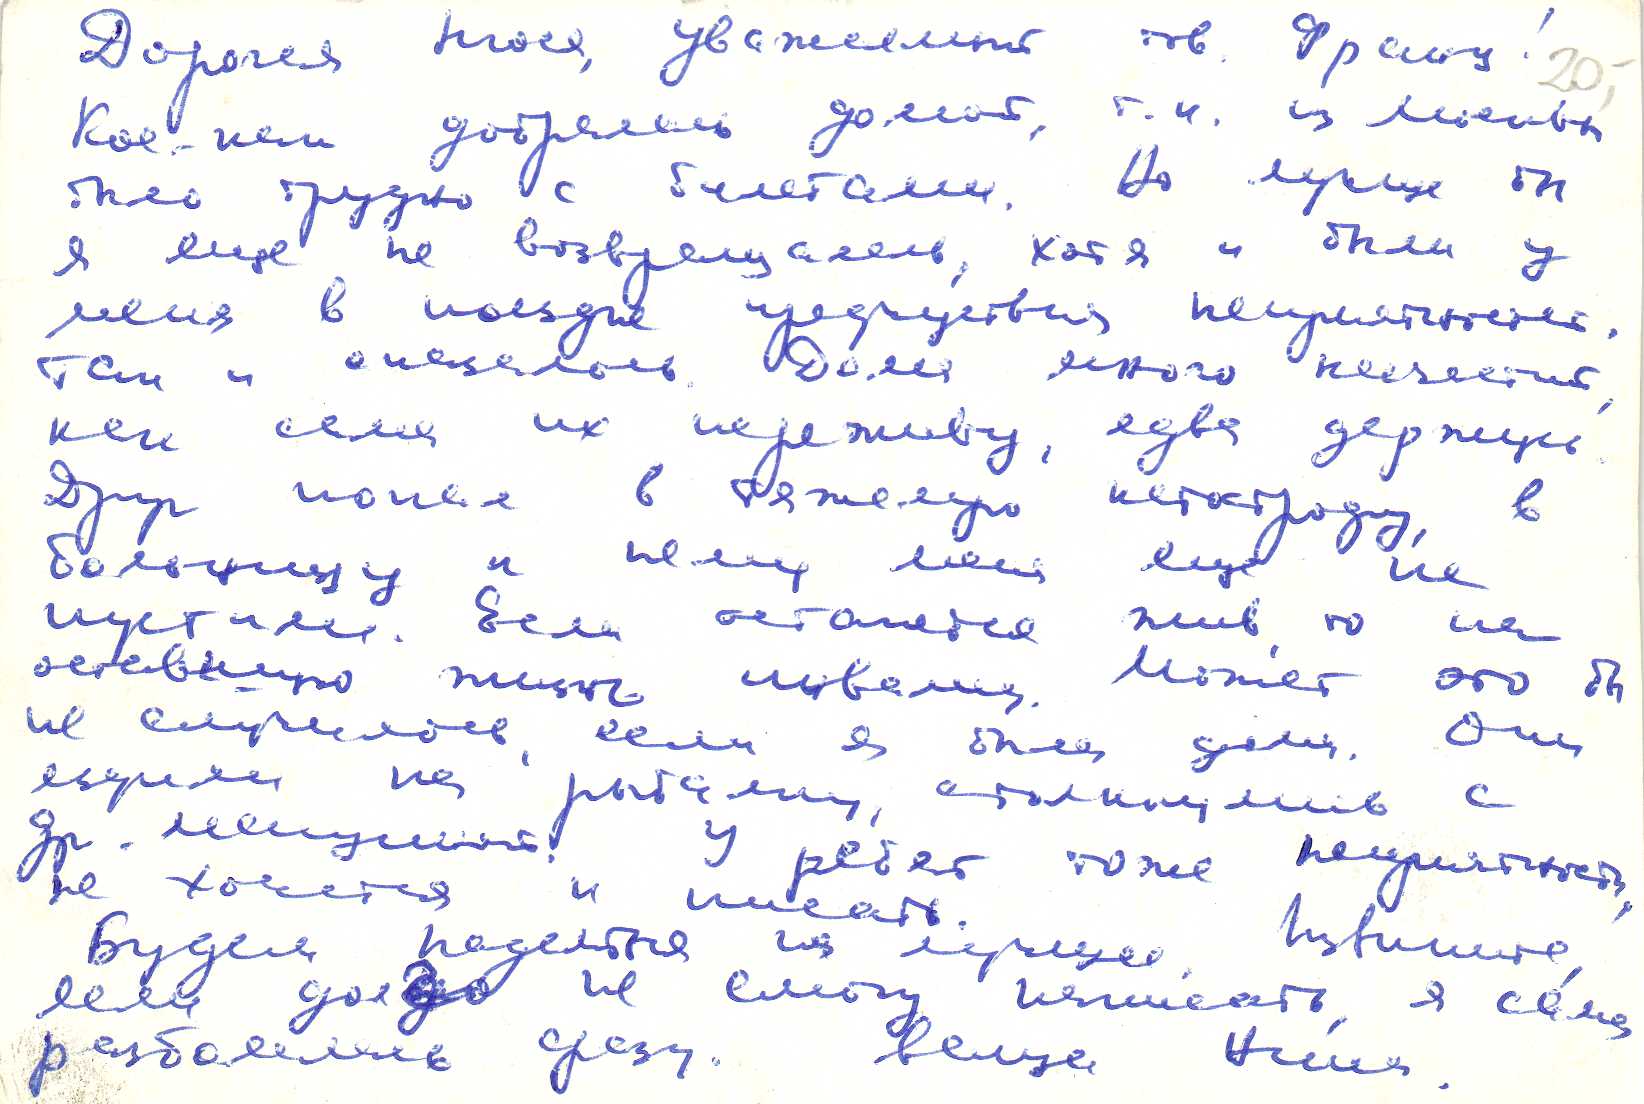 Дорогая Нюся, уважаемый тов. Франц! 20,-
Кое-как добралась домой, т.к. из Москвы
было трудно с билетами. Но лучше бы
я еще не возвращалась, хотя и были у
меня в поезде предчувствия неприятностей.
Так и оказалось. Дома много несчастий,
как сама их переживу, едва держусь.
Друг попал в тяжелую катастрофу, в
больницу к нему меня еще не
пустили. Если останется жив, то на
оставшую жизнь инвалид. Может это бы
не случилось, если я была дома. Они
ездили на рыбалку, столкнулись с
др. машиной. У ребят тоже неприятности,
не хочется и писать.
Будем надеяться на лучшее. Извините,
если долго не смогу написать, я сама
разболелась сразу. Ваша Нина.